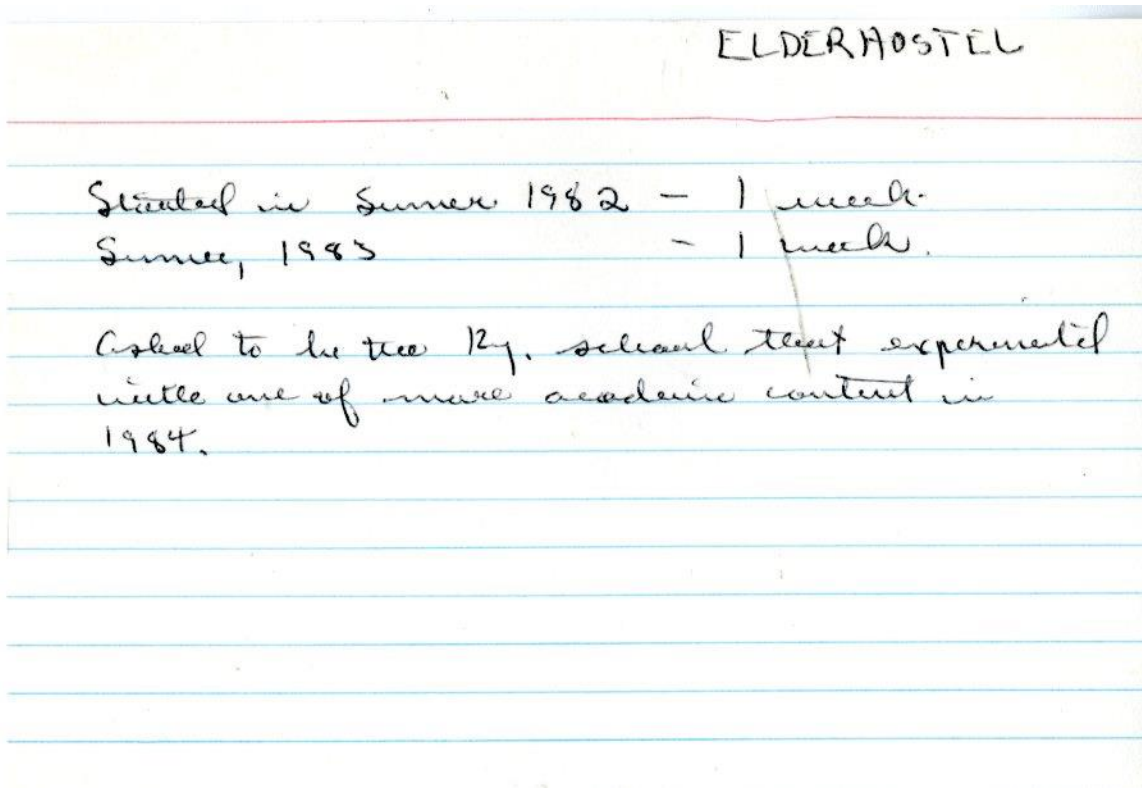 ELDERHOSTEL
Started in Summer 1982 - 1 week.
Summer, 1983 - 1 week.
Asked to be the Ky. school that experimented
with one of more academic content in
1984.